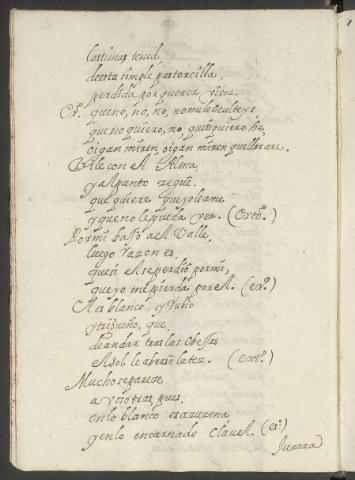 lastimas tened,
de esta simple pastorcilla,
perdida por querer bien.
que no, no, no me le oculteys
que no quiero, no, que si quiero
oigan miren, oigan miren que llorare.
Vile con el Alma,
y al punto
que quiere que yo le ame
y que no le pueda ver. (
Por mi baxó a el Valle,
luego razon es,
que si el se perdió por mi,
que yo me pierda por el. (
El es blanco, y rubio
y trigueño, que
de andar tras las obejas
el sol le abrasó la tez. (
Mucho se pareze
a vosotras pues
en lo blanco es azuzena
y en lo encarnado clavel. (
Jurara